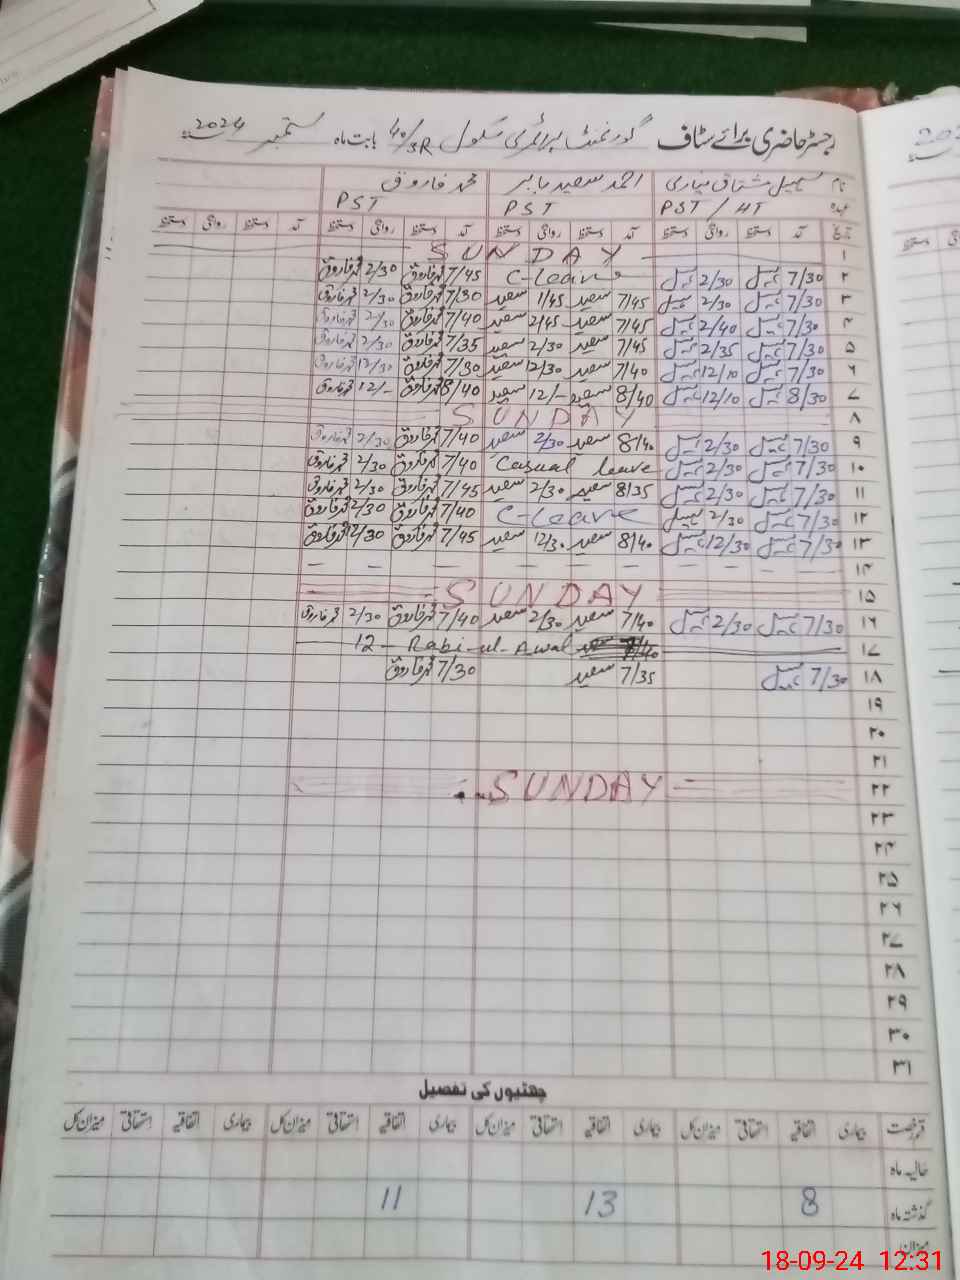 رجسٹر حاضری برائے سٹاف گورنمنٹ پرائمری سکول 40/3R بابت ماہ ستمبر سنہ 2024
نام سہیل مشتاق نیازی احمد سعید بابر محمد فاروق
عہدہ PST / HT PST PST
تاریخ آمد دستخط روانگی دستخط آمد دستخط روانگی دستخط آمد دستخط روانگی دستخط آمد دستخط روانگی دستخط
۱ SUNDAY
۲ 7/30 سہیل 2/30 سہیل C-leave 7/45 محمد فاروق 2/30 محمد فاروق
۳ 7/30 سہیل 2/30 سہیل 7/45 سعید 1/45 سعید 7/30 محمد فاروق 2/30 محمد فاروق
۴ 7/30 سہیل 2/40 سہیل 7/45 سعید 2/45 سعید 7/40 محمد فاروق 2/30 محمد فاروق
۵ 7/30 سہیل 2/35 سہیل 7/45 سعید 2/30 سعید 7/35 محمد فاروق 2/30 محمد فاروق
۶ 7/30 سہیل 12/10 سہیل 7/40 سعید 12/30 سعید 7/30 محمد فاروق 12/30 محمد فاروق
۷ 8/30 سہیل 12/10 سہیل 8/40 سعید 12/- سعید 8/40 محمد فاروق 12/- محمد فاروق
۸ SUNDAY
۹ 7/30 سہیل 2/30 سہیل 8/40 سعید 2/30 سعید 7/40 محمد فاروق 2/30 محمد فاروق
۱۰ 7/30 سہیل 2/30 سہیل Casual leave 7/40 محمد فاروق 2/30 محمد فاروق
۱۱ 7/30 سہیل 2/30 سہیل 8/35 سعید 2/30 سعید 7/45 محمد فاروق 2/30 محمد فاروق
۱۲ 7/30 سہیل 2/30 سہیل C-Leave 7/40 محمد فاروق 2/30 محمد فاروق
۱۳ 7/30 سہیل 12/30 سہیل 8/40 سعید 12/30 سعید 7/45 محمد فاروق 12/30 محمد فاروق
۱۴ – – – – – – – – – –
۱۵ SUNDAY
۱۶ 7/30 سہیل 2/30 سہیل 7/40 سعید 2/30 سعید 7/40 محمد فاروق 2/30 محمد فاروق
۱۷ 12 - Rabi-ul-Awal
۱۸ 7/30 سہیل 7/35 سعید 7/30 محمد فاروق
۱۹
۲۰
۲۱
۲۲ SUNDAY
۲۳
۲۴
۲۵
۲۶
۲۷
۲۸
۲۹
۳۰
۳۱
چھٹیوں کی تفصیل
قسم رخصت بیماری اتفاقیہ استحقاقی میزان کل بیماری اتفاقیہ استحقاقی میزان کل بیماری اتفاقیہ استحقاقی میزان کل بیماری اتفاقیہ استحقاقی میزان کل
حالیہ ماہ
گذشتہ ماہ 8 13 11
میزان
18-09-24 12:31